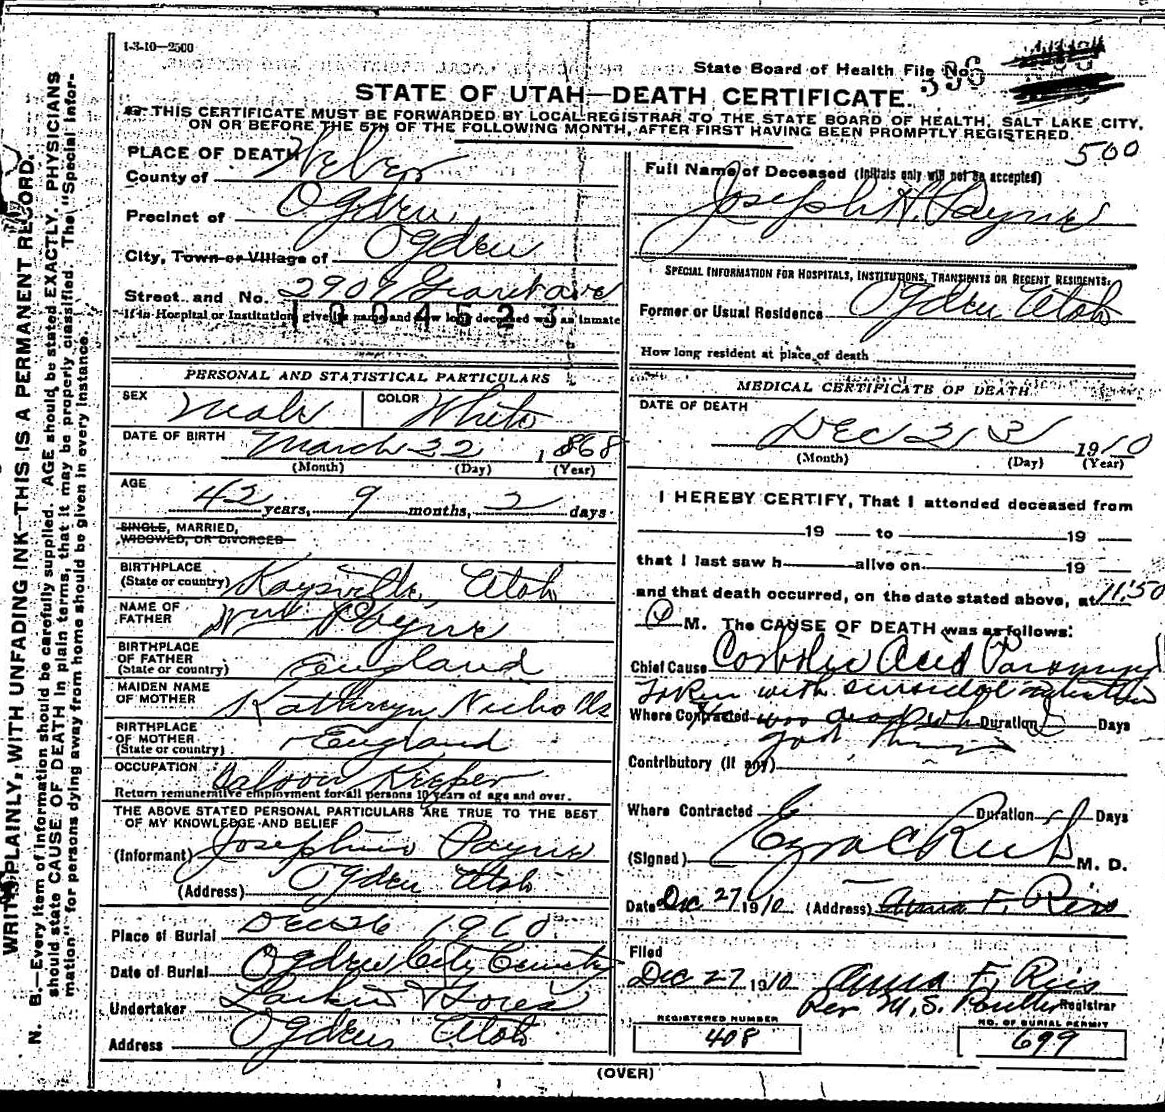 1-3-10—2500
State Board of Health File No. 396
STATE OF UTAH—DEATH CERTIFICATE.
THIS CERTIFICATE MUST BE FORWARDED BY LOCAL REGISTRAR TO THE STATE BOARD OF HEALTH, SALT LAKE CITY,
ON OR BEFORE THE 5TH OF THE FOLLOWING MONTH, AFTER FIRST HAVING BEEN PROMPTLY REGISTERED.
500
WRITE PLAINLY, WITH UNFADING INK—THIS IS A PERMANENT RECORD.
N. B.—Every item of information should be carefully supplied. AGE should be stated EXACTLY. PHYSICIANS
should state CAUSE OF DEATH in plain terms, that it may be properly classified. The "Special Infor-
mation" for persons dying away from home should be given in every instance.
PLACE OF DEATH
County of Weber
Precinct of Ogden
City, Town or Village of Ogden
Street and No. 2909 Grant ave
If in Hospital or Institution, give its name and how long deceased was as inmate
1004523
PERSONAL AND STATISTICAL PARTICULARS
SEX Male COLOR White
DATE OF BIRTH March 22 1868
(Month) (Day) (Year)
AGE
42 years, 9 months, 2 days
SINGLE, MARRIED,
WIDOWED, OR DIVORCED
BIRTHPLACE
(State or country) Kaysville, Utah
NAME OF
FATHER Wm Payne
BIRTHPLACE
OF FATHER
(State or country) England
MAIDEN NAME
OF MOTHER Kathryn Nicholls
BIRTHPLACE
OF MOTHER
(State or country) England
OCCUPATION Saloon Keeper
Return remunerative employment for all persons 10 years of age and over.
THE ABOVE STATED PERSONAL PARTICULARS ARE TRUE TO THE BEST
OF MY KNOWLEDGE AND BELIEF
(Informant) Josephine Payne
(Address) Ogden Utah
Place of Burial Dec 26 1910
Date of Burial Ogden City Cemetery
Undertaker Larkin & Sons
Address Ogden Utah
Full Name of Deceased (Initials only will not be accepted)
Joseph H. Payne
SPECIAL INFORMATION FOR HOSPITALS, INSTITUTIONS, TRANSIENTS OR RECENT RESIDENTS.
Former or Usual Residence Ogden Utah
How long resident at place of death
MEDICAL CERTIFICATE OF DEATH
DATE OF DEATH
Dec 23 1910
(Month) (Day) (Year)
I HEREBY CERTIFY, That I attended deceased from
19 to 19
that I last saw h alive on 19
and that death occurred, on the date stated above, at 11:50
P M. The CAUSE OF DEATH was as follows:
Chief Cause Carbolic Acid Poisoning
Taken with suicidal intention
Where Contracted was dead when Duration Days
got there
Contributory (if any)
Where Contracted Duration Days
(Signed) Ezra C Rich M. D.
Date Dec 27 1910 (Address) Anna F. Ries
Filed
Dec 27 1910 Anna F. Ries
Per M. S. Registrar
REGISTERED NUMBER
408
NO. OF BURIAL PERMIT
699
(OVER)